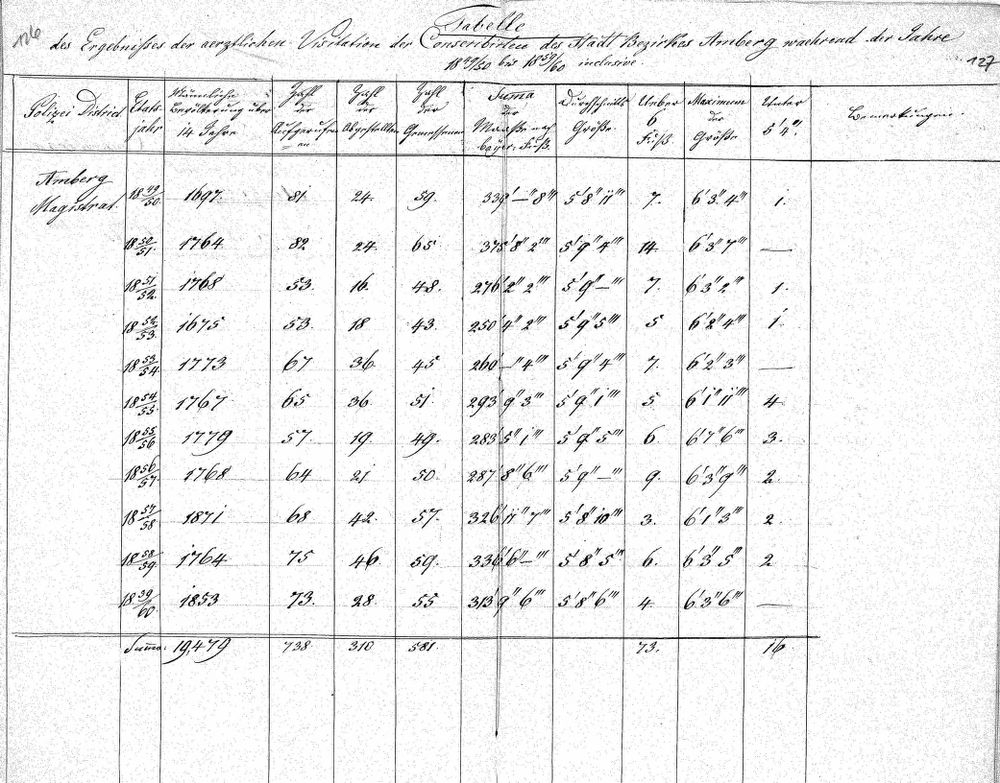 126
Tabelle
des Ergebnißes der aerztlichen Visitation der Conscribirten des Stadt Bezirkes Amberg waehrend der Jahre
18 49/50 bis 18 59/60 inclusive.
127
Polizei District | Etats jahr | Männliche Bevölkerung über 14 Jahre | Zahl der Aufgerufenen | Zahl der Abgestellten | Zahl der Gemessenen | Suma der Maaße nach bayer. Fuß. | Durchschnitts Größe. | Ueber 6 Fuß. | Maximum der Größe | Unter 5'4". | Bemerkungen.
Amberg Magistrat. | 18 49/50 | 1697. | 81 | 24. | 59. | 339'—"8''' | 5'8"11''' | 7. | 6'3"4''' | 1.
18 50/51. | 1764 | 82 | 24. | 65 | 375'8"2''' | 5'9"4''' | 14. | 6'3"7''' | —
18 51/52. | 1768 | 53. | 16. | 48. | 276'2"2''' | 5'9"—''' | 7. | 6'3"2''' | 1.
18 52/53. | 1675 | 53. | 18 | 43. | 250'4"2''' | 5'9"5''' | 5 | 6'2"4''' | 1.
18 53/54. | 1773 | 67 | 36 | 45 | 260'—"4''' | 5'9"4''' | 7. | 6'2"3''' | —
18 54/55. | 1767 | 65 | 36. | 51. | 293'9"3''' | 5'9"1''' | 5. | 6'1"11''' | 4
18 55/56 | 1779 | 57. | 19. | 49. | 283'5"1''' | 5'9"5''' | 6. | 6'7"6''' | 3.
18 56/57 | 1768 | 64 | 21 | 50. | 287'8"6''' | 5'9"—''' | 9. | 6'3"9''' | 2.
18 57/58 | 1871 | 68 | 42. | 57. | 326'11"7''' | 5'8"10''' | 3. | 6'1"3''' | 2.
18 58/59. | 1764 | 75 | 46. | 59. | 336'6"—''' | 5'8"5''' | 6. | 6'3"5''' | 2
18 59/60. | 1853 | 73. | 28. | 55 | 313'9"6''' | 5'8"6''' | 4. | 6'3"6''' | —
Summa: | 19,479 | 738. | 310 | 581. | 73. | 16